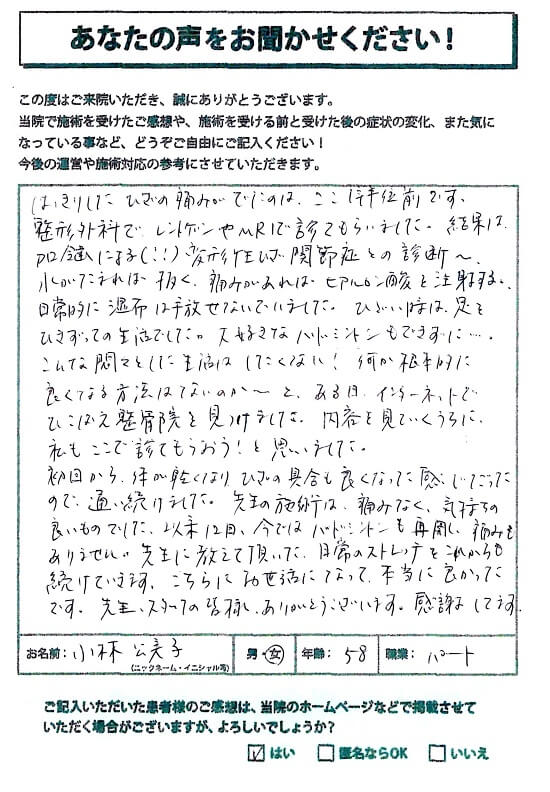 あなたの声をお聞かせください！
この度はご来院いただき、誠にありがとうございます。
当院で施術を受けたご感想や、施術を受ける前と受けた後の症状の変化、また気に
なっている事など、どうぞご自由にご記入ください！
今後の運営や施術対応の参考にさせていただきます。
はっきりした ひざの痛みがでたのは、ここ1年半位前です。
整形外科で レントゲンやMRIで診てもらいました。結果は、
加令による(!!) 変形性ひざ関節症との診断〜
水がたまれば抜く、痛みがあれば ヒアルロン酸を注射する。
日常的に湿布は手放せないでいました。ひどい時は、足を
ひきずっての生活でした。大好きなバドミントンもできずに…。
こんな悶々とした生活は したくない！ 何か根本的に
良くなる方法はないのか〜 と、ある日、インターネットで
ひこばえ整骨院を見つけました。内容を見ていくうちに、
私もここで診てもらおう！と思いました。
初回から、体が軽くなり ひざの具合も良くなった感じだった
ので、通い続けました。先生の施術は、痛みなく、気持ちの
良いものでした。以来12回、今ではバドミントンも再開し、痛みも
ありません。先生に教えて頂いた、日常のストレッチをこれからも
続けていきます。こちらにお世話になって、本当に良かった
です。先生、スタッフの皆様、ありがとうございます。感謝してます。
お名前： 小林 公美子 (ニックネーム・イニシャル可) 男・女 年齢： 58 職業： パート
ご記入いただいた患者様のご感想は、当院のホームページなどで掲載させて
いただく場合がございますが、よろしいでしょうか？
はい 匿名ならOK いいえ